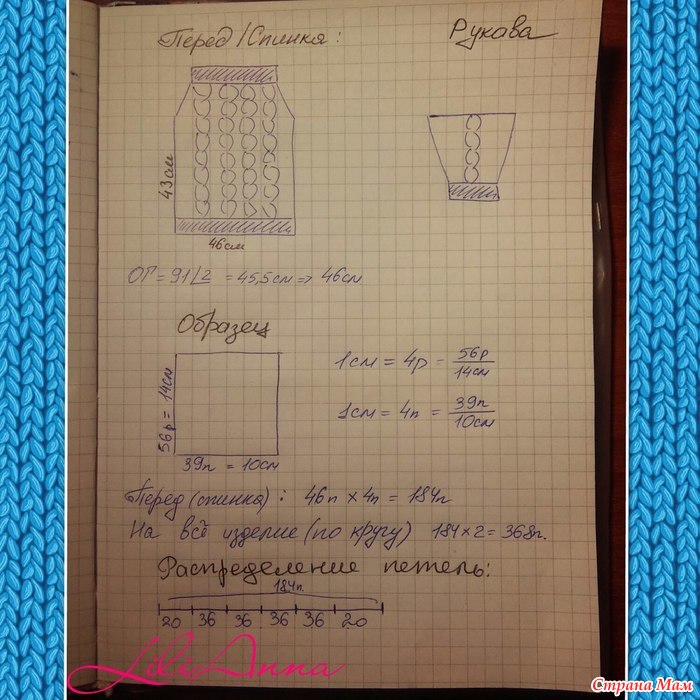 Перед/Спинка:
Рукава
43см
46см
ОГ = 91/2 = 45,5см => 46см
Образец
56р = 14см
39п = 10см
1см = 4р = 56р/14см
1см = 4п = 39п/10см
Перед (спинка): 46п × 4п = 184п
На всё изделие (по кругу) 184×2=368п.
Распределение петель:
184п.
20 36 36 36 36 20
LiliAnna
Страна Мам